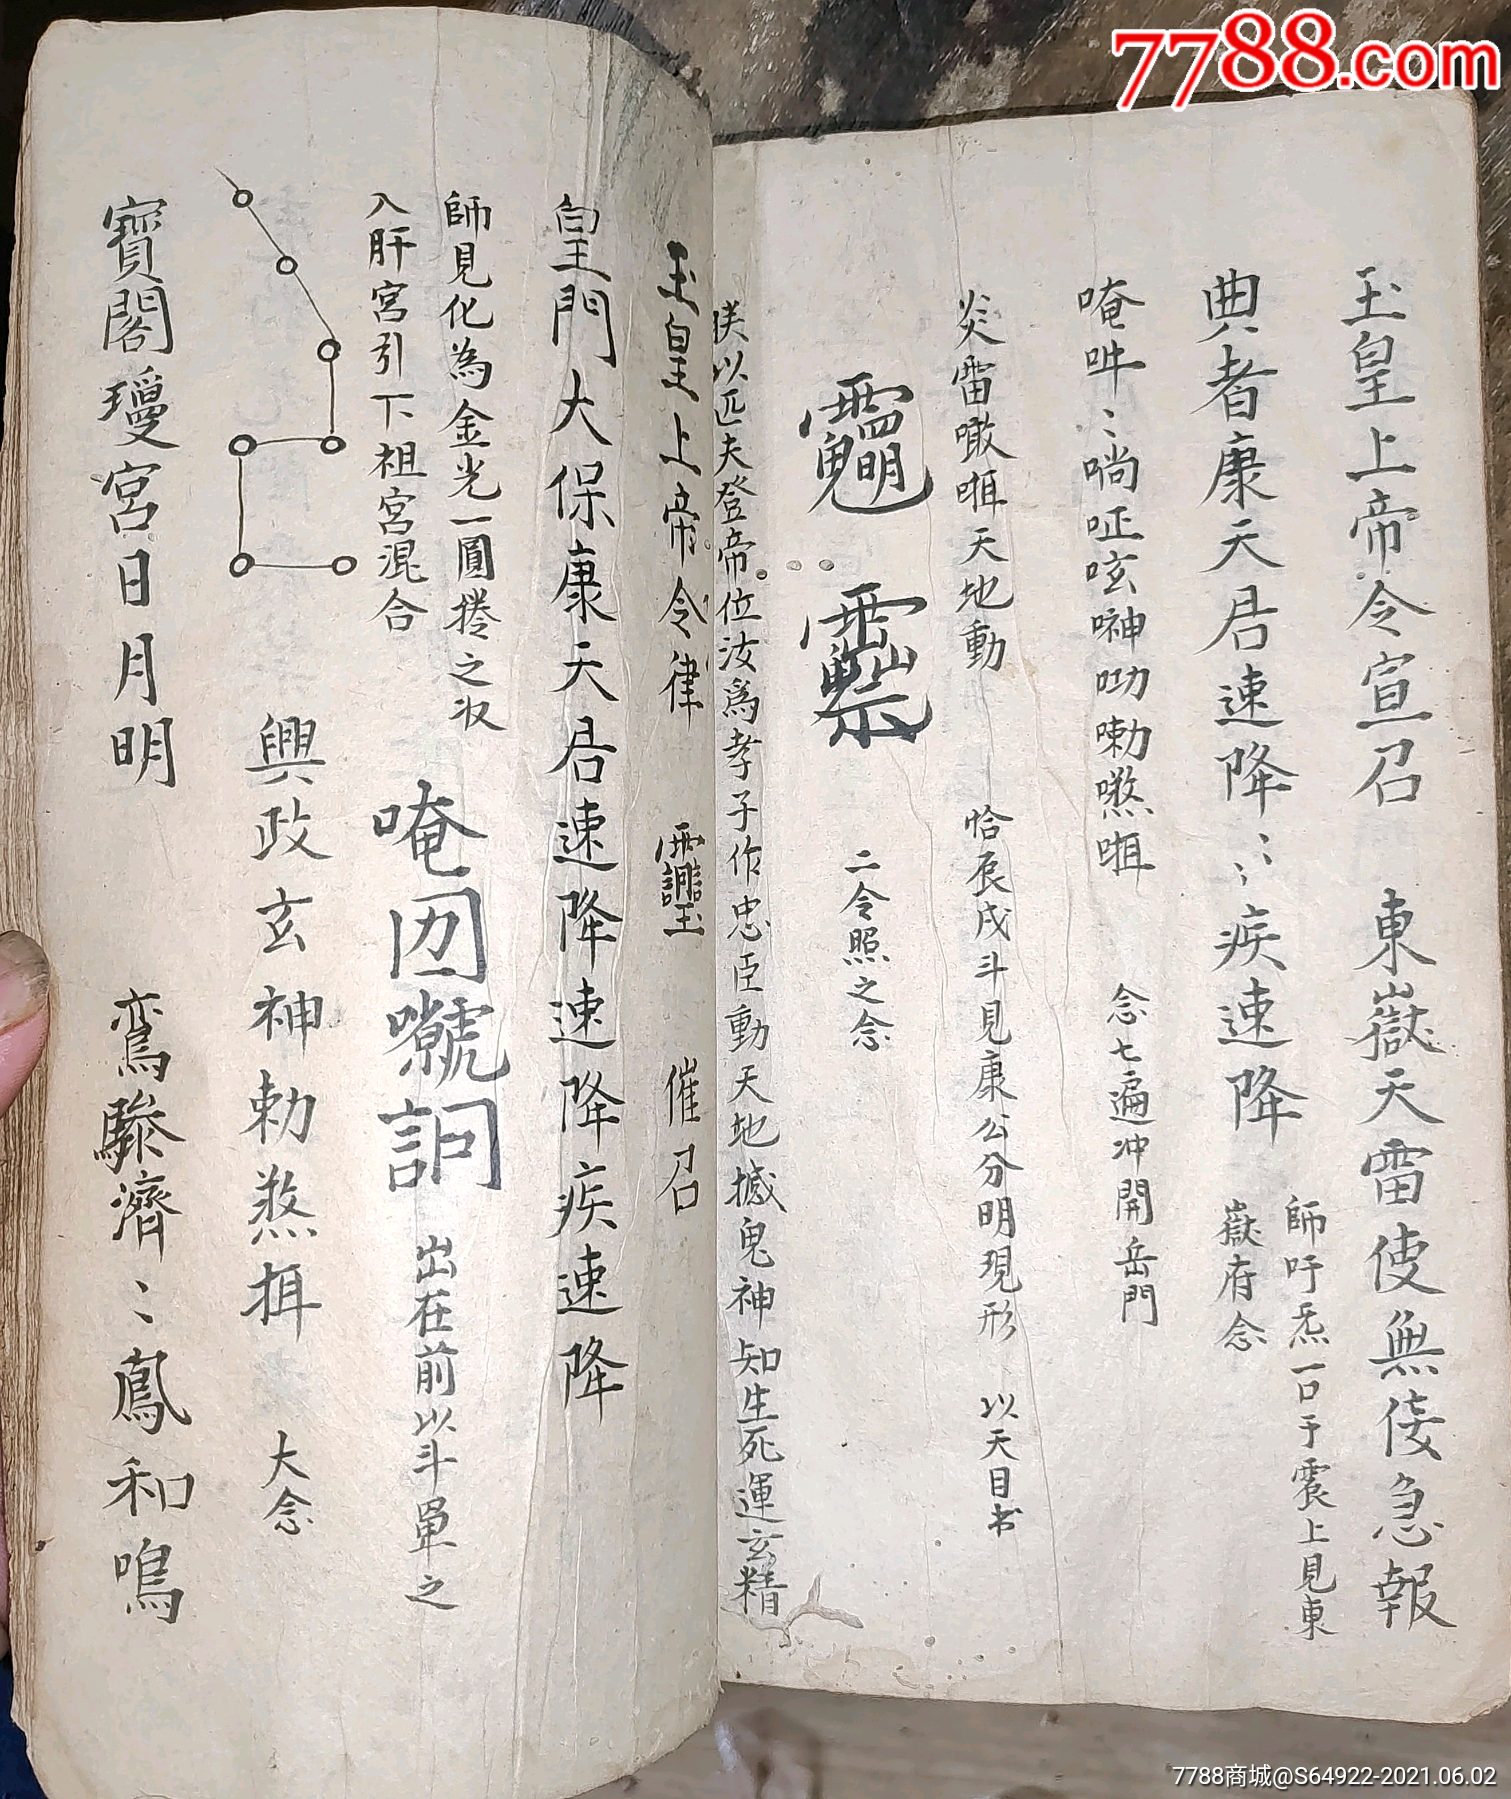 7788.com
玉皇上帝令宣召 東嶽天雷使無佞急報
典者康天君速降〻疾速降 師吁炁一口于震上見東嶽府念
唵吽〻 念七遍冲開岳門
炎雷 天地動 恰辰戌斗見康公分明現形 以天目书
二令照之念
以匹夫登帝位汝爲孝子作忠臣動天地撼鬼神知生死運玄精
玉皇上帝令律 催召
皇門大保康天君速降速降疾速降
師見化為金光一圓捲之收
入肝宮引下祖宮混合 唵 出在前以斗罩之
興政玄神勅煞摄 大念
寶閣瓊宮日月明 鸾驂濟〻鳳和鳴
7788商城@S64922-2021.06.02